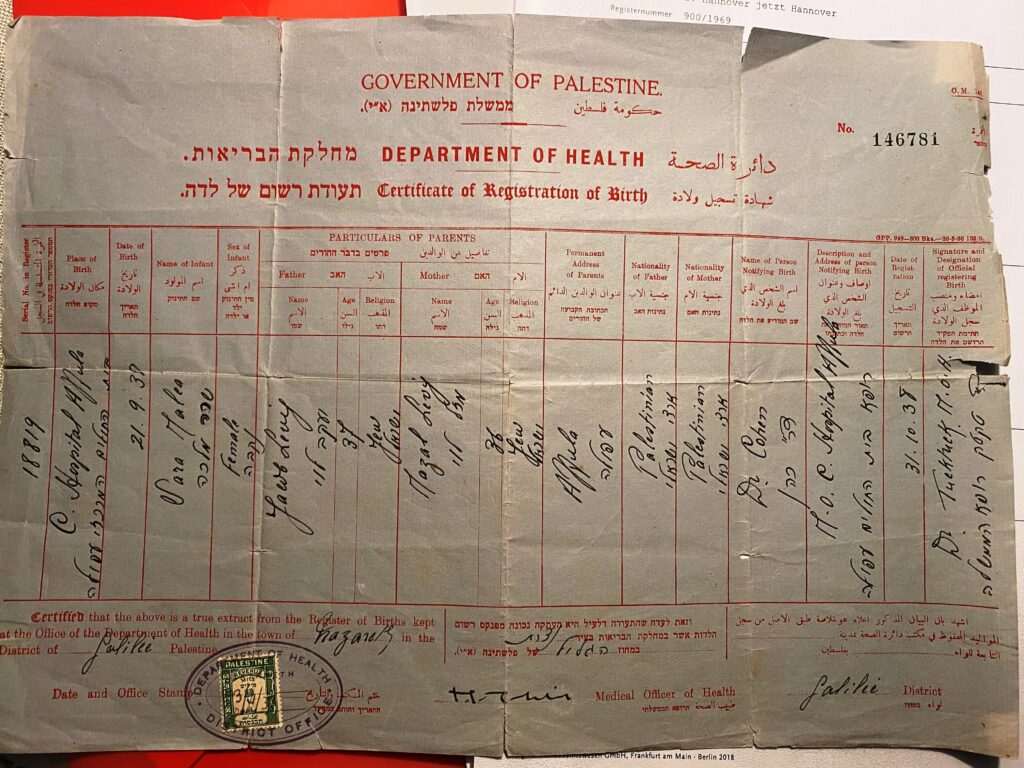 Hannover jetzt Hannover
Registernummer 900/1969
GOVERNMENT OF PALESTINE.
ממשלת פלשתינה (א״י). حكومة فلسطين
No. 146781
מחלקת הבריאות. DEPARTMENT OF HEALTH دائرة الصحة
תעודת רשום של לדה. Certificate of Registration of Birth شهادة تسجيل ولادة
PARTICULARS OF PARENTS
פרטים בדבר ההורים تفاصيل عن الوالدين
Father האב الاب
Mother האם الام
Serial No. in Register
Place of Birth مكان الولادة מקום הלדה
Date of Birth تاريخ الولادة תאריך הלדה
Name of Infant اسم المولود שם התינוק
Sex of Infant ذكر ام انثى מין התינוק ילד או ילדה
Name الاسم שמו
Age السن גילו
Religion المذهب דתו
Name الاسم שמה
Age السن גילה
Religion المذهب דתה
Permanent Address of Parents عنوان الوالدين الدائم הכתובת הקבועה של ההורים
Nationality of Father جنسية الاب נתינות האב
Nationality of Mother جنسية الام נתינות האם
Name of Person Notifying Birth اسم الشخص الذي بلغ الولادة שם המודיע את הלדה
Description and Address of person Notifying Birth اوصاف وعنوان الشخص الذي بلغ الولادة
Date of Registration تاريخ التسجيل תאריך הרשום
Signature and Designation of Official registering Birth امضاء ومنصب الموظف الذي سجل الولادة חתימת הפקיד הרושם את הלדה
18819
C. Hospital Affula
21.9.38
Female נקבה
לוי
37
Jew
ישראל
Mazal Levy
מזל לוי
36
Jew
ישראל
Affula
עפולה
Palestinian
ארצי ישראלי
Palestinian
ארצי ישראלי
Dr. Cohen
ד״ר כהן
M.O. C. Hospital Affula
רופא בית החולים עפולה
31.10.38
M.O.H.
רופא הממשלה
Certified that the above is a true extract from the Register of Births kept
at the Office of the Department of Health in the town of Nazareth in the
District of Galilee Palestine
זאת לעדה שהתעודה דלעיל היא העתקה נכונה מפנקס רשום
הלדות אשר במחלקת הבריאות בעיר נצרת
במחוז הגליל של פלשתינה (א״י).
اشهد بان البيان المذكور اعلاه هو خلاصة طبق الاصل من سجل
المواليد المحفوظ في مكتب دائرة الصحة بمدينة
التابعة للواء بفلسطين
Date and Office Stamp
DEPARTMENT OF HEALTH
DISTRICT OFFICE
PALESTINE
REVENUE
MILS
Medical Officer of Health
طبيب الصحة הרופא הממשלתי
Galilee District
لواء במחוז
GmbH, Frankfurt am Main · Berlin 2018